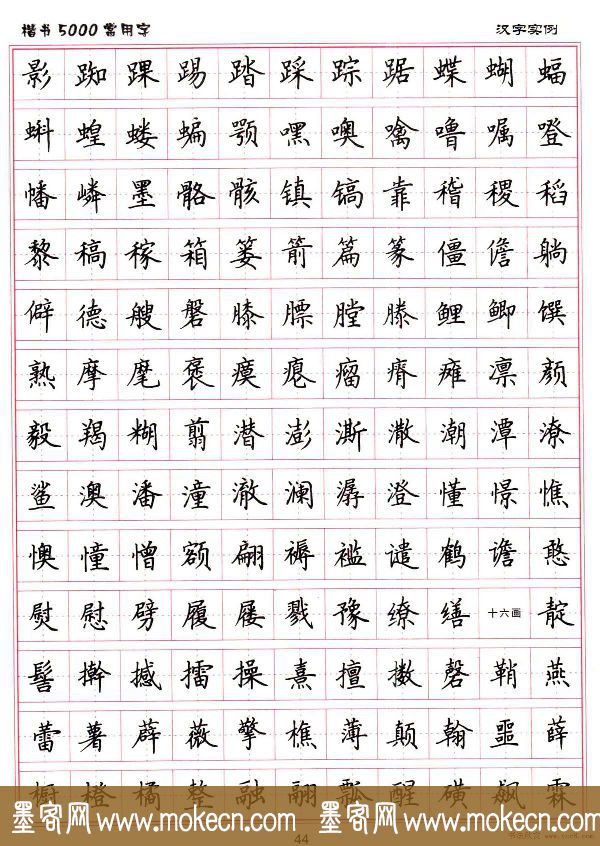 楷书5000常用字 汉字实例
影 踟 踝 踢 踏 踩 踪 踞 蝶 蝴 蝠
蝌 蝗 蝼 蝙 颚 嘿 噢 噙 噜 嘱 噔
幡 嶙 墨 骼 骸 镇 镐 靠 稽 稷 稻
黎 稿 稼 箱 篓 箭 篇 篆 僵 儋 躺
僻 德 艘 磐 膝 膘 膛 滕 鲤 鲫 馔
熟 摩 麾 褒 瘼 瘪 瘤 瘠 瘫 凛 颜
毅 羯 糊 翦 潜 澎 澌 潵 潮 潭 潦
鲨 澳 潘 潼 澈 澜 潺 澄 懂 憬 憔
懊 憧 憎 额 翩 褥 褴 谴 鹤 谵 憨
熨 慰 劈 履 屦 戮 豫 缭 缮 十六画 靛
髻 擀 撼 擂 操 熹 擅 擞 磬 鞘 燕
蕾 薯 薜 薇 擎 樵 薄 颠 翰 噩 薛
橱 橙 橘 整 融 翮 瓢 醒 磺 飙 霖
墨客网 www.mokecn.com 墨客网 www.mokecn.com
44